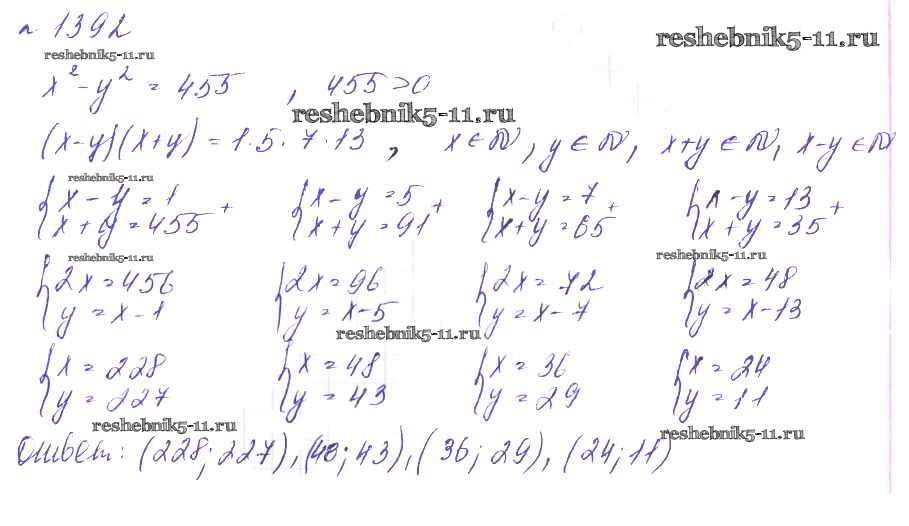 n 1392
reshebnik5-11.ru
reshebnik5-11.ru
x² - y² = 455, 455 > 0
reshebnik5-11.ru
(x-y)(x+y) = 1·5·7·13, x∈N, y∈N, x+y∈N, x-y∈N
reshebnik5-11.ru
{x - y = 1 {x - y = 5 {x - y = 7 {x - y = 13
{x + y = 455 + {x + y = 91 + {x + y = 65 + {x + y = 35 +
reshebnik5-11.ru
reshebnik5-11.ru
{2x = 456 {2x = 96 {2x = 72 {2x = 48
{y = x - 1 {y = x - 5 {y = x - 7 {y = x - 13
reshebnik5-11.ru
{x = 228 {x = 48 {x = 36 {x = 24
{y = 227 {y = 43 {y = 29 {y = 11
reshebnik5-11.ru
reshebnik5-11.ru
Ответ: (228; 227), (48; 43), (36; 29), (24; 11)